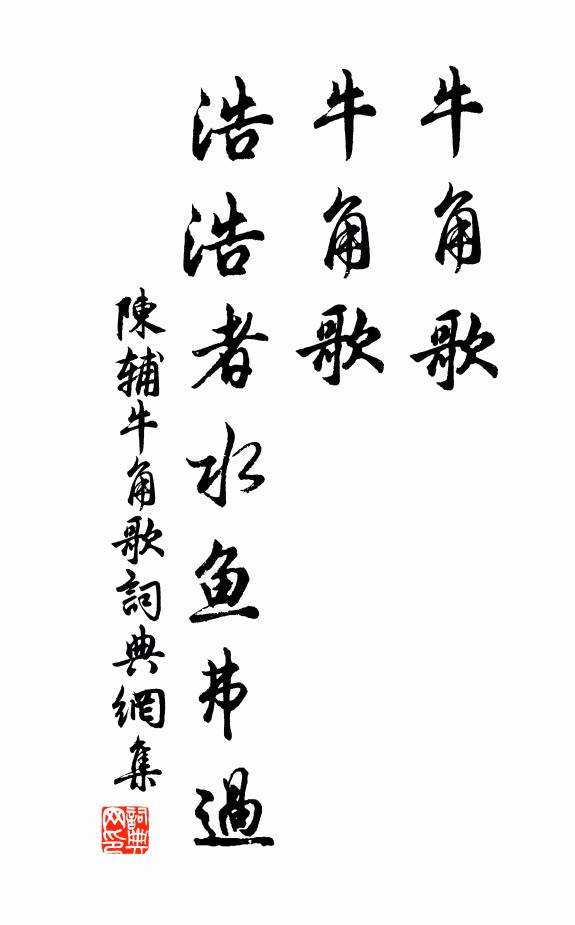 牛角歌
牛角歌
浩浩者水鱼弗過
陳辅牛角歌詞典網集
詞典網印